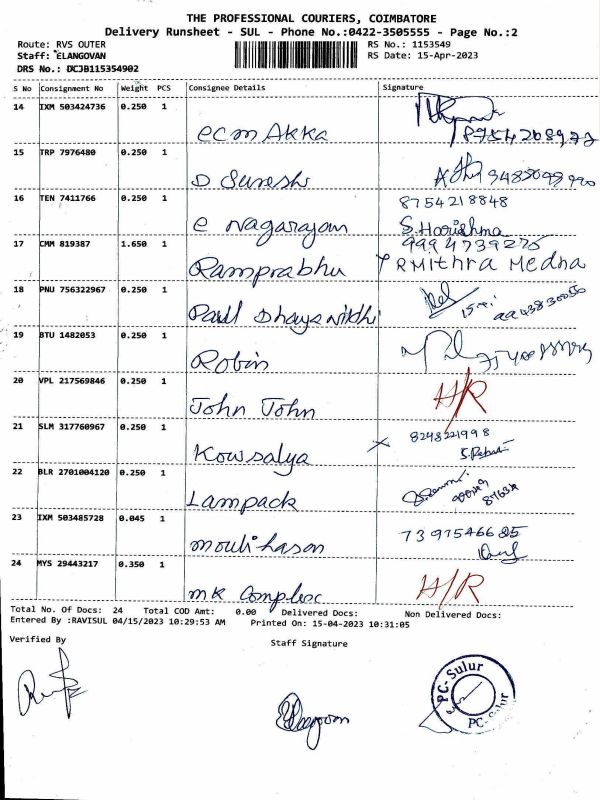 THE PROFESSIONAL COURIERS, COIMBATORE
Delivery Runsheet - SUL - Phone No.:0422-3505555 - Page No.:2
Route: RVS OUTER RS No.: 1153549
Staff: ELANGOVAN RS Date: 15-Apr-2023
DRS No.: DCJB115354902
S No Consignment No Weight PCS Consignee Details Signature
14 IXM 503424736 0.250 1
ecm Akka 8754208972
15 TRP 7976480 0.250 1
D Suresh
16 TEN 7411766 0.250 1 8754218848
e nagarajan S.Harishma
17 CMM 819387 1.650 1 9994739275
Ramprabhu RMithra Medha
18 PNU 756322967 0.250 1
Paul Dhayanidhi
19 BTU 1482053 0.250 1
Robin
20 VPL 217569846 0.250 1 H/R
John John
21 SLM 317760967 0.250 1 8248221998
Kowsalya
22 BLR 2701004120 0.250 1
Lampack
23 IXM 503485728 0.045 1 7397546685
moulihasan
24 MYS 29443217 0.350 1 H/R
mk Complex
Total No. Of Docs: 24 Total COD Amt: 0.00 Delivered Docs: Non Delivered Docs:
Entered By :RAVISUL 04/15/2023 10:29:53 AM Printed On: 15-04-2023 10:31:05
Verified By Staff Signature
Elangovan
PC-Sulur
PC-Sulur